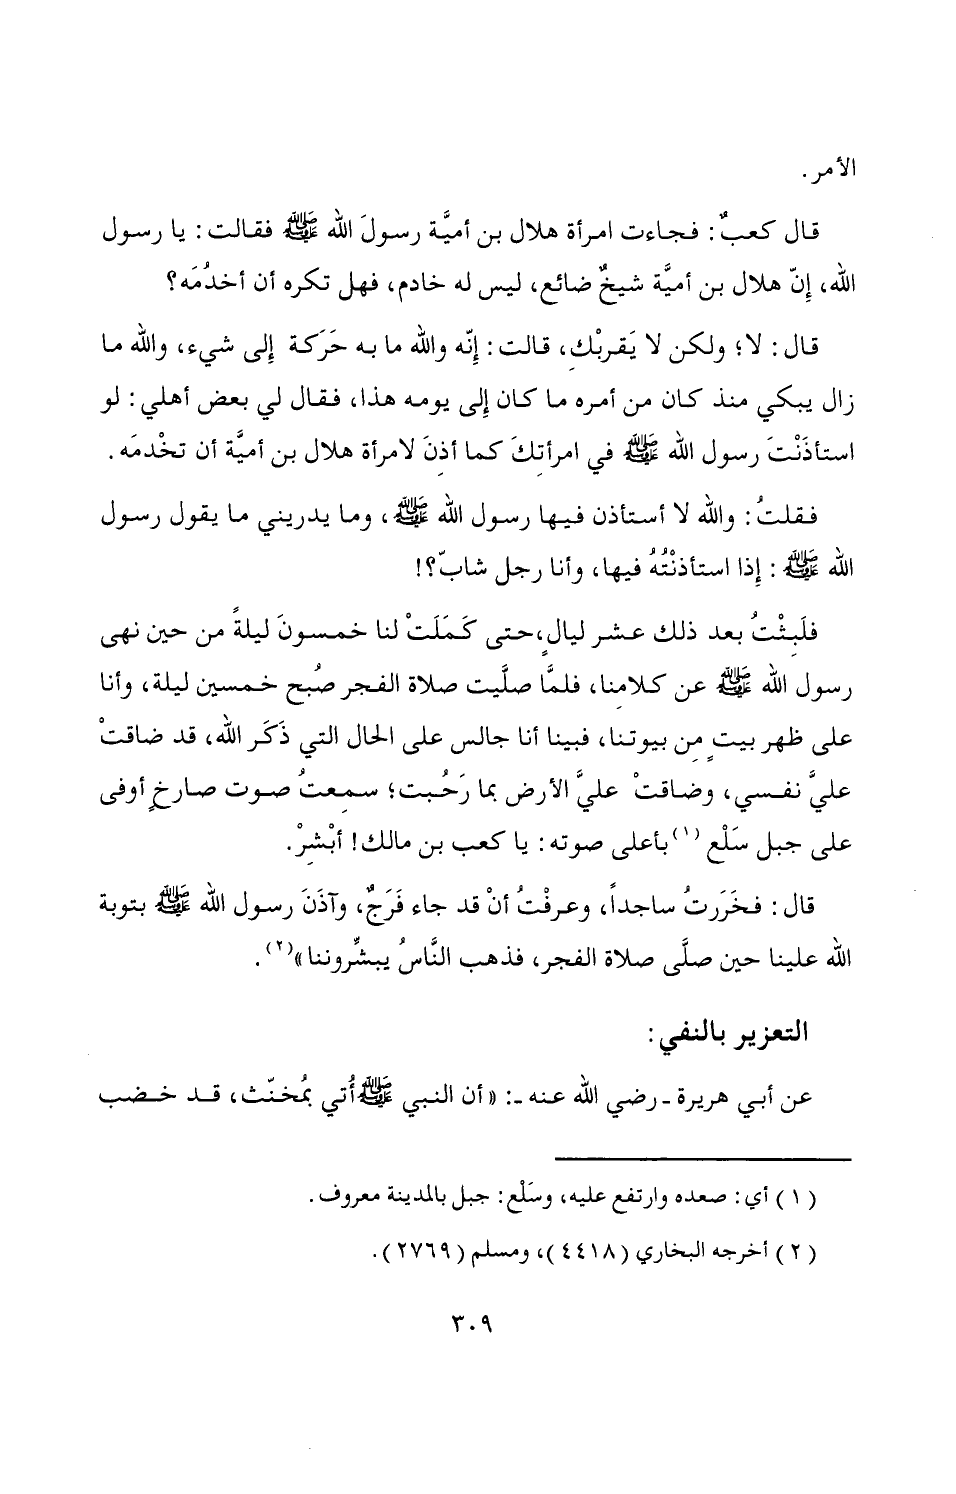 الأمر.
قال كعبٌ: فجاءت امرأة هلال بن أميَّة رسولَ الله ﷺ فقالت: يا رسول
الله، إنّ هلال بن أميَّة شيخٌ ضائع، ليس له خادم، فهل تكره أن أخدُمَه؟
قال: لا؛ ولكن لا يَقربْكِ، قالت: إنّه والله ما به حَرَكة إلى شيء، والله ما
زال يبكي منذ كان من أمره ما كان إلى يومه هذا، فقال لي بعض أهلي: لو
استأذَنْتَ رسول الله ﷺ في امرأتِكَ كما أذِنَ لامرأة هلال بن أميَّة أن تخْدمَه.
فقلتُ: والله لا أستأذن فيها رسول الله ﷺ، وما يدريني ما يقول رسول
الله ﷺ: إذا استأذنْتُهُ فيها، وأنا رجل شابّ؟!
فلَبِثْتُ بعد ذلك عشر ليالٍ،حتى كَمَلَتْ لنا خمسونَ ليلةً من حين نهى
رسول الله ﷺ عن كلامِنا، فلمَّا صلَّيت صلاة الفجر صُبح خمسين ليلة، وأنا
على ظهر بيتٍ مِن بيوتنا، فبينا أنا جالس على الحال التي ذَكَر الله، قد ضاقتْ
عليَّ نفسي، وضاقتْ عليَّ الأرض بما رَحُبت؛ سمعتُ صوت صارخٍ أوفى
على جبل سَلْع (١)بأعلى صوته: يا كعب بن مالك! أبْشِرْ.
قال: فخَرَرتُ ساجداً، وعرفْتُ أنْ قد جاء فَرَجٌ، وآذَنَ رسول الله ﷺ بتوبة
الله علينا حين صلَّى صلاة الفجر، فذهب النَّاسُ يبشِّروننا»(٢).
التعزير بالنفي:
عن أبي هريرة ـ رضي الله عنه ـ: «أن النبي ﷺأُتي بمُخنّث، قد خضب
(١) أي: صعده وارتفع عليه، وسَلْع: جبل بالمدينة معروف.
(٢) أخرجه البخاري (٤٤١٨)، ومسلم (٢٧٦٩).
٣٠٩